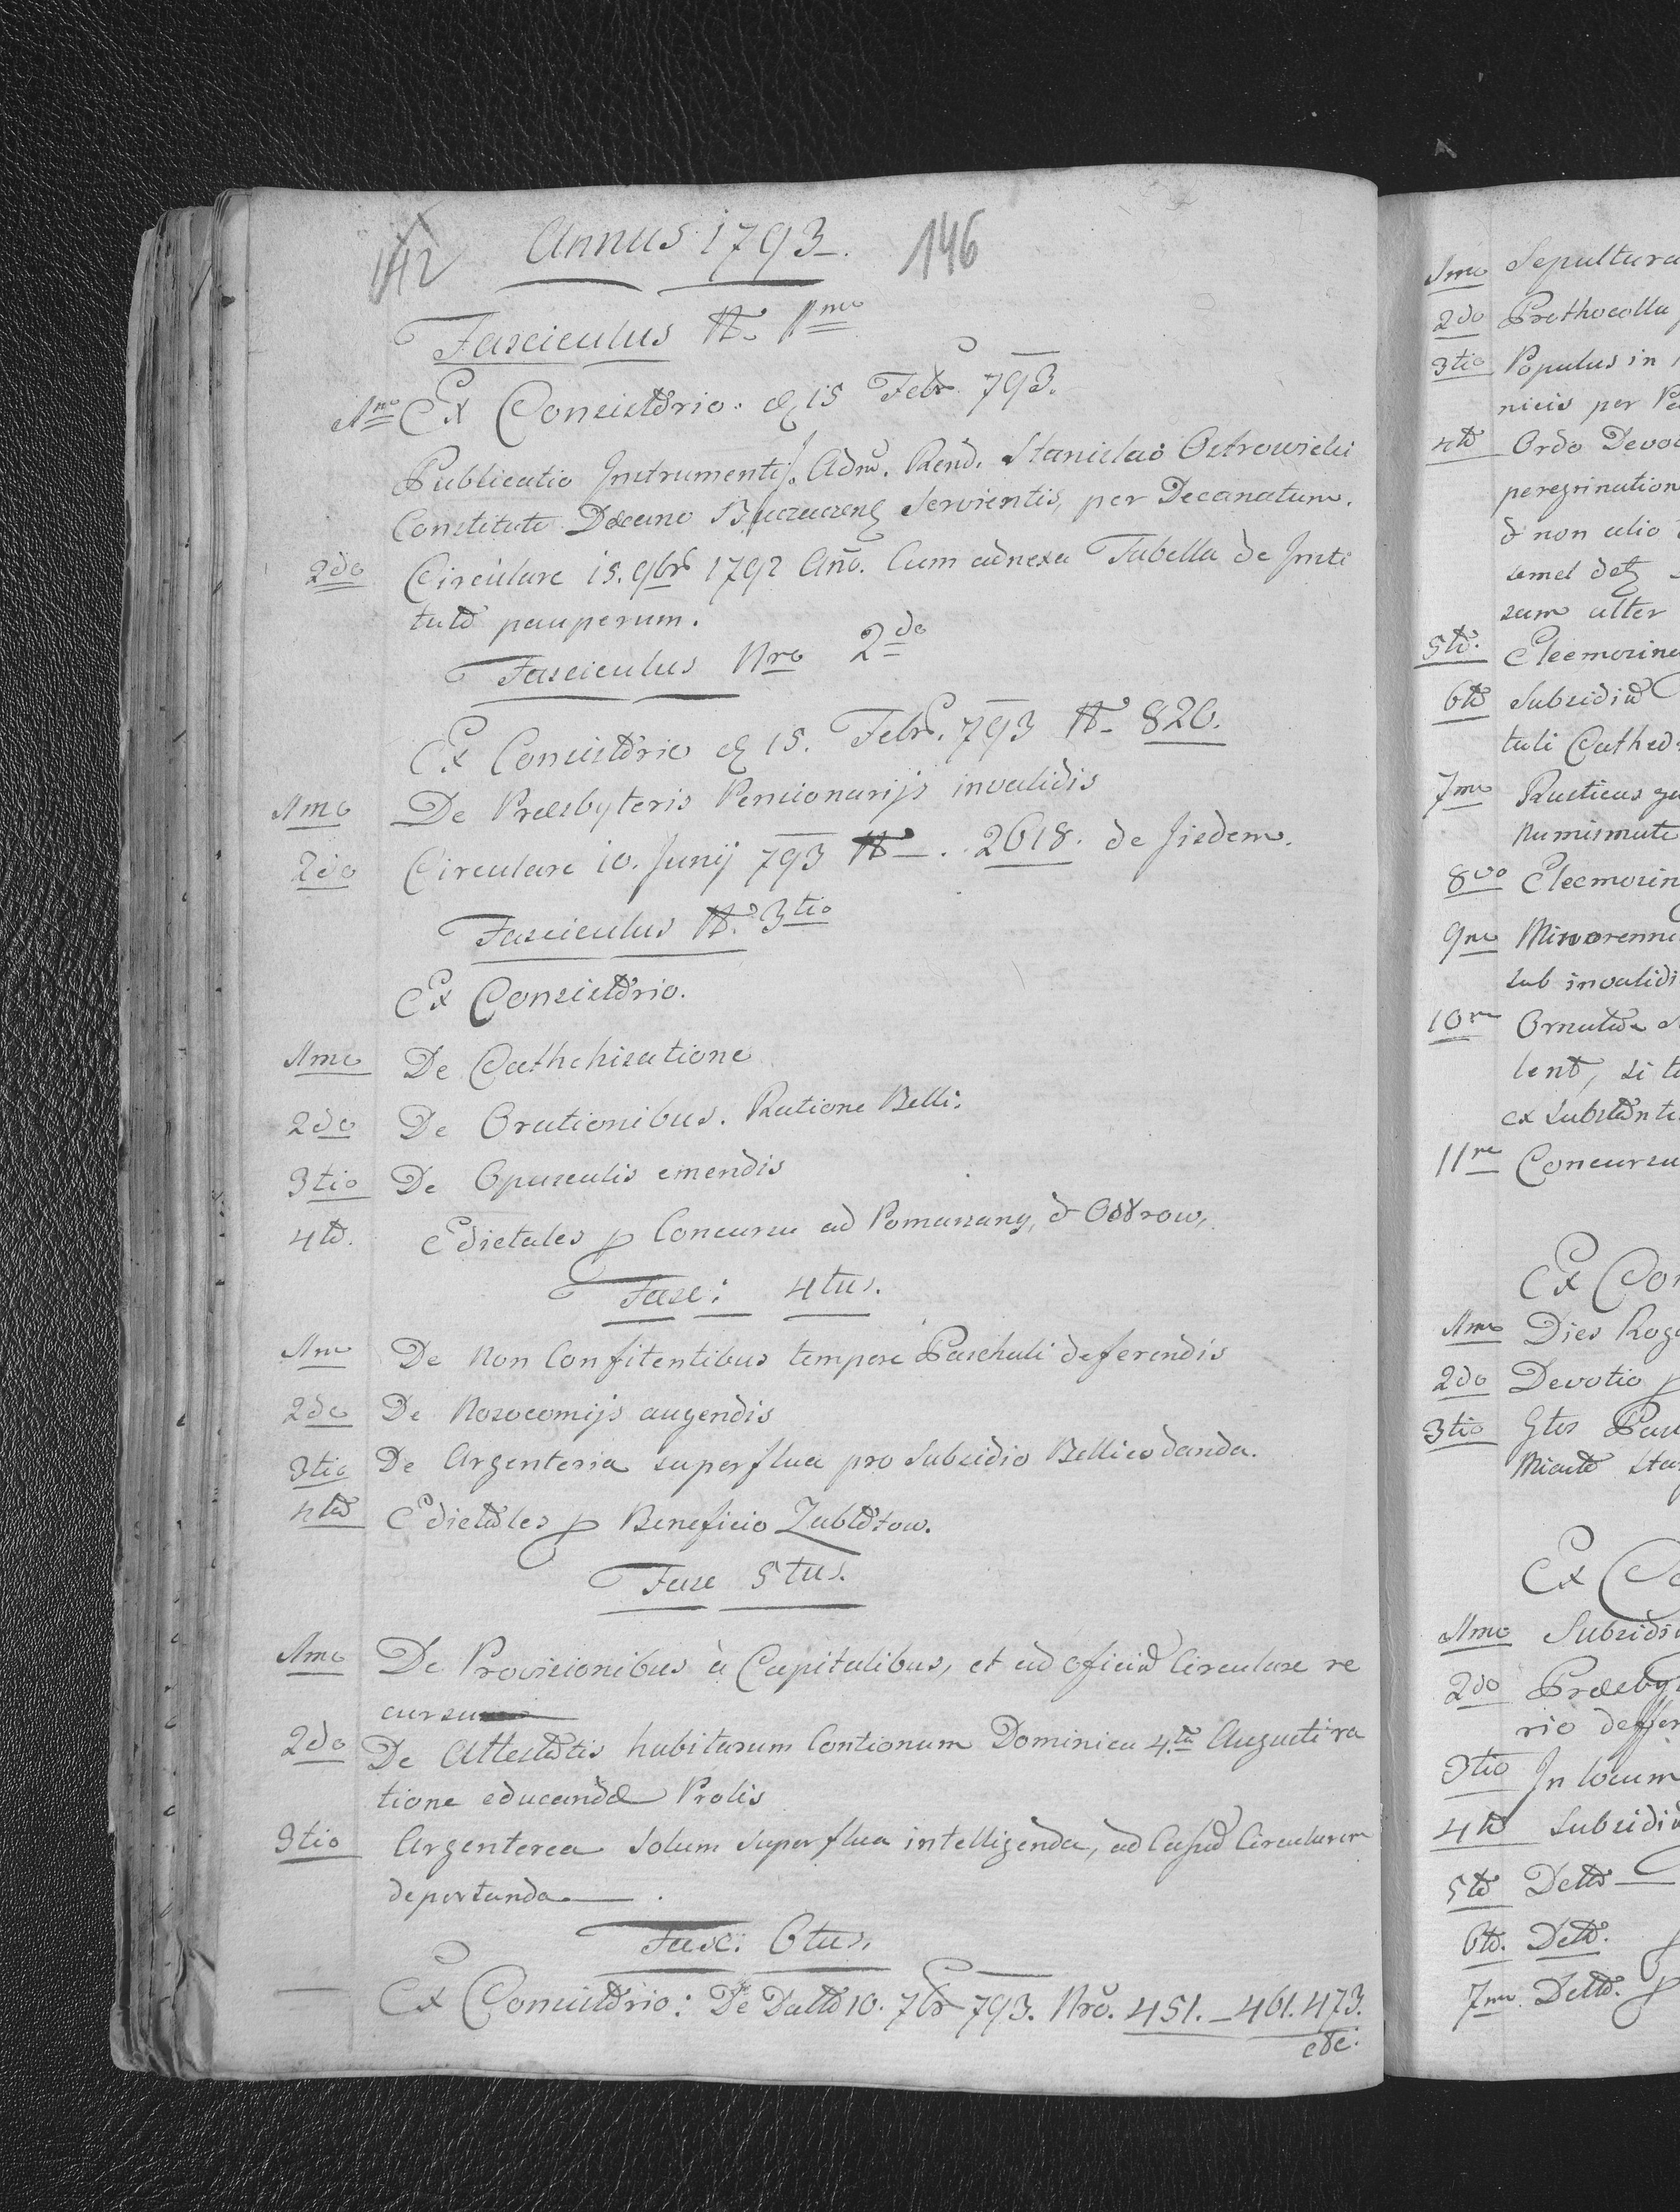 142 Annus 1793. 146
Fasciculus N. 1mo
1mo Ex Consistorio. d. 15 Febr. 793.
Publicatio Instrumenti Adm. Rend. Stanislao Ostrowicki
Constituto Decano Buczaczens Servientis, per Decanatum.
2do Circulare 15. 9br 1792 Año. Cum adnexa Tabella de Insti
tuto pauperum.
Fasciculus Nro 2do
Ex Consistorio d 15. Febr. 793 N. 820.
1mo De Præsbyteris Pensionarijs invalidis
2do Circulare 10. Junij 793 N. 2618. de Iisdem.
Fasciculus N. 3tio
Ex Consistorio.
1mo De Cathehisatione
2do De Orationibus. Ratione Belli.
3tio De Opusculis emendis
4to. Edictales p Concursu ad Pomarzany, & Ostrow,
Fasc: 4tus.
1mo De Non Confitentibus tempore Paschali deferendis
2do De Nosocomijs augendis
3tio De Argenteria superflua pro Subsidio Bellico danda.
4to Edictales p Beneficio Zablotow.
Fasc 5tus.
1mo De Provisionibus a Capitalibus, et ad oficia Circulare re
cursu
2do De Attestatis habitarum Contionum Dominica 4ta Augusti ra
tione educandæ Prolis
3tio Argenterea solum superflua intelligenda, ad Casua Circularem
deportanda.
Fasc: 6tus.
Ex Consistorio: De Datto 10. 7br 793. Nro. 451. 461. 473.
etc:
1mo Sepultura
2do Prothocolla
3tio Populus in
nicis per
4to Ordo
peregrination
& non alio
semel
sum alter
5to. Eleemosina
6to Subsidia
tuli Cathed
7mo Rusticus
Numismate
8vo Eleemosin
9no Minorenni
sub invalidi
10mo
lent, si
ex
11mo Concursu
Ex Con
1mo Dies Rog
2do Devotio
3tio
Ex Co
1mo Subsidi
2do Præsby
rio
3tio In locum
4to Subsidi
5to Detto
6to. Detto.
7mo. Detto.